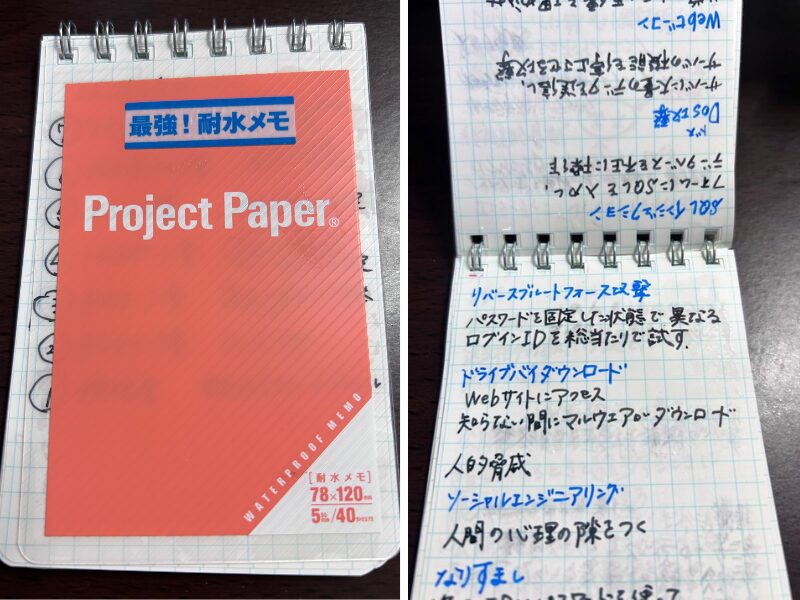 最強！耐水メモ
Project Paper®
WATERPROOF MEMO
［耐水メモ］
78×120mm
5mm/40SHEETS
Webビーコン
サーバに大量のデータを送信し、
サーバの機能を停止させる攻撃
DoS攻撃
フォームにSQLを入力し、
データベースを不正に操作
SQLインジェクション
リバースブルートフォース攻撃
パスワードを固定した状態で異なる
ログインIDを総当たりで試す.
ドライブバイダウンロード
Webサイトにアクセス
知らない間にマルウェアがダウンロード
人的脅威
ソーシャルエンジニアリング
人間の心理の隙をつく
なりすまし